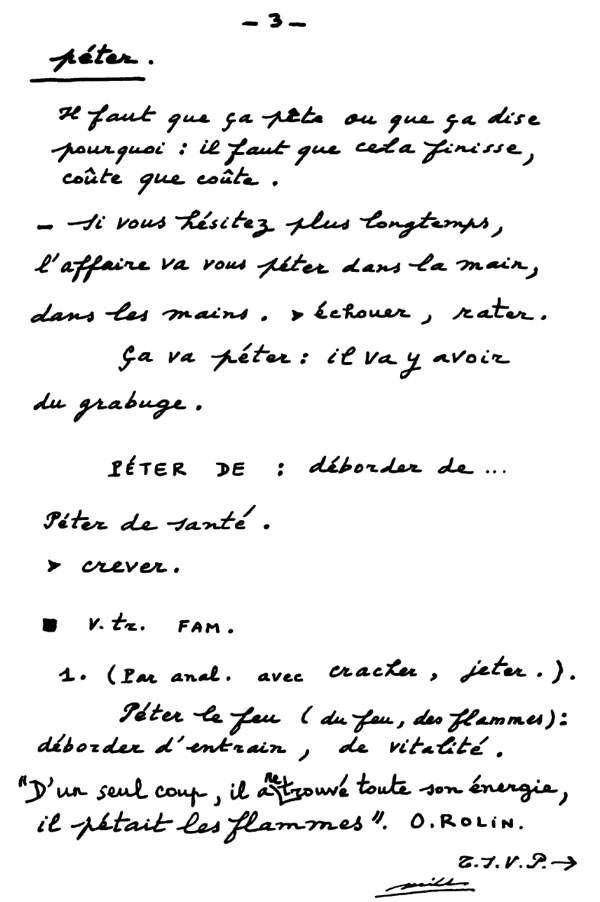 - 3 -
péter.
Il faut que ça pète ou que ça dise
pourquoi : il faut que cela finisse,
coûte que coûte.
- Si vous hésitez plus longtemps,
l'affaire va vous péter dans la main,
dans les mains. ➤ échouer, rater.
Ça va péter : il va y avoir
du grabuge.
PÉTER DE : déborder de ...
Péter de santé.
➤ crever.
■ V. tr. FAM.
1. (Par anal. avec cracher, jeter.).
Péter le feu (du feu, des flammes) :
déborder d'entrain, de vitalité.
"D'un seul coup, il a retrouvé toute son énergie,
il pétait les flammes". O. ROLIN.
T.S.V.P. →